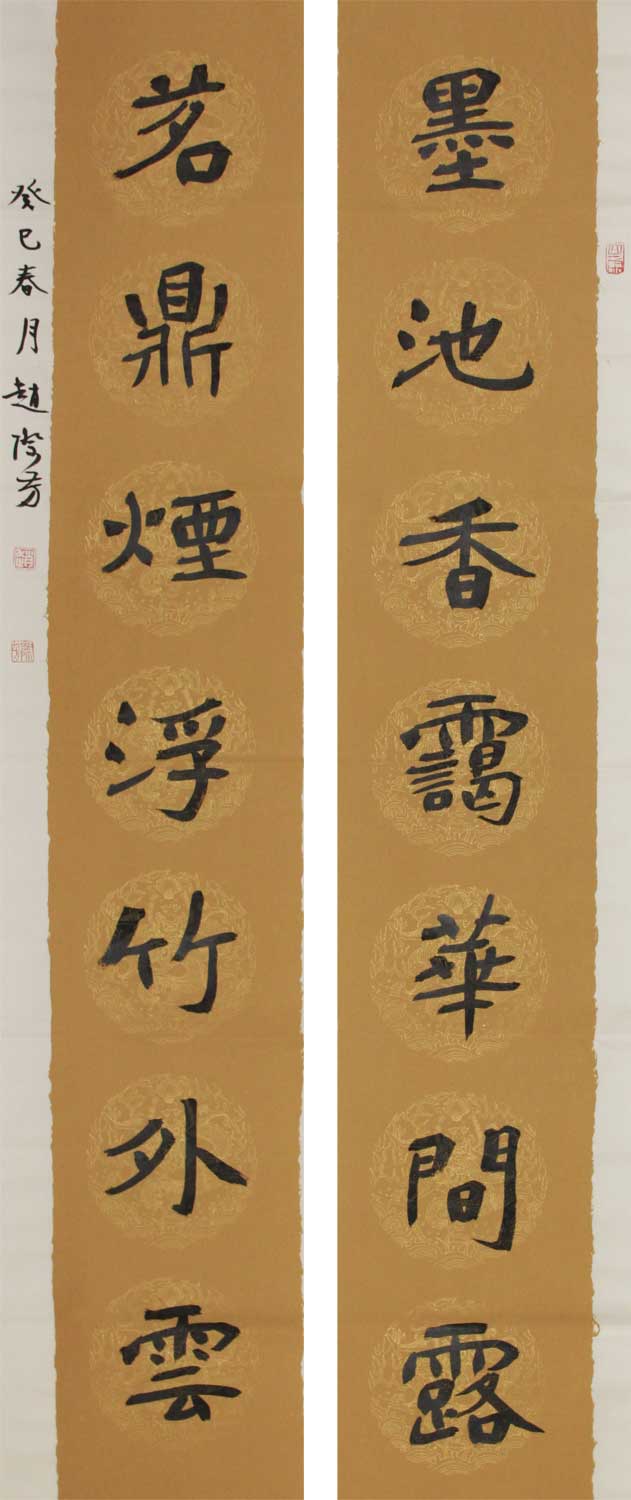 墨池香靄華間露
茗鼎煙浮竹外雲
癸巳春月趙